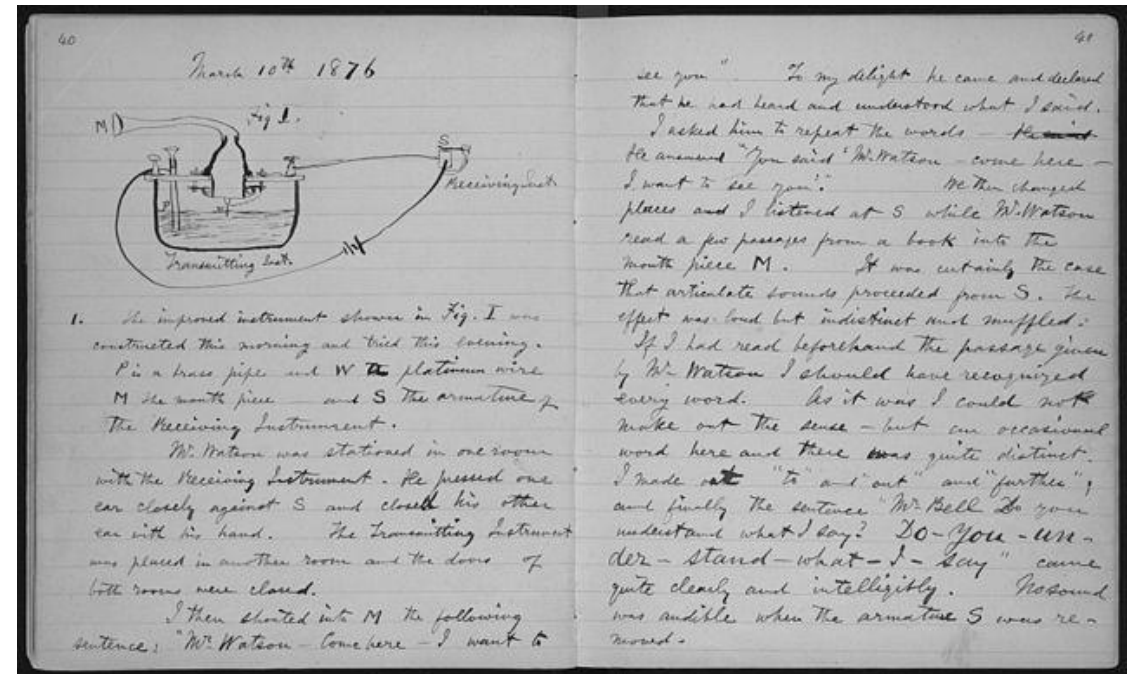 40
March 10th 1876
Fig 1.
M
S
Receiving Inst.
P
W
Transmitting Inst.
1. The improved instrument shown in Fig. I was
constructed this morning and tried this evening.
P is a brass pipe and W a platinum wire
M the mouth piece — and S the armature of
the Receiving Instrument.
Mr. Watson was stationed in one room
with the Receiving Instrument. He pressed one
ear closely against S and closed his other
ear with his hand. The Transmitting Instrument
was placed in another room and the doors of
both rooms were closed.
I then shouted into M the following
sentence: "Mr. Watson — Come here — I want to
41
see you". To my delight he came and declared
that he had heard and understood what I said.
I asked him to repeat the words — He said
He answered "You said "Mr. Watson — come here —
I want to see you"." We then changed
places and I listened at S while Mr. Watson
read a few passages from a book into the
mouth piece M. It was certainly the case
that articulate sounds proceeded from S. The
effect was loud but indistinct and muffled:
If I had read beforehand the passage given
by Mr. Watson I should have recognized
every word. As it was I could not
make out the sense — but an occasional
word here and there was quite distinct.
I made out "to" and "out" and "further";
and finally the sentence "Mr. Bell Do you
understand what I say? Do - you - un -
der - stand - what - I - say" came
quite clearly and intelligibly. No sound
was audible when the armature S was re-
moved.